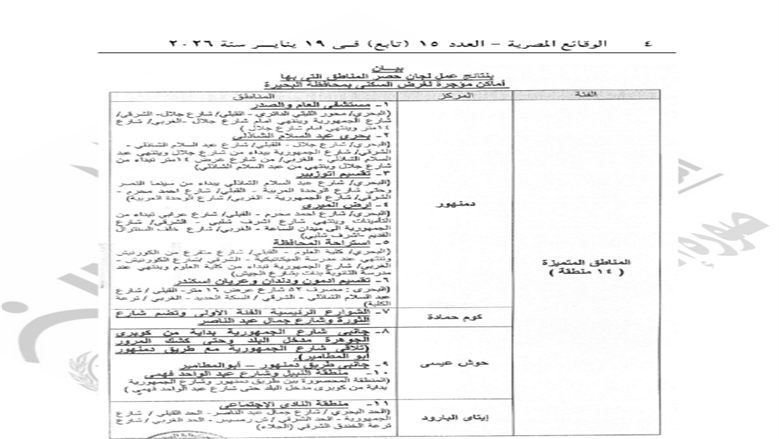 ٤ الوقائع المصرية - العدد ١٥ (تابع) فى ١٩ يناير سنة ٢٠٢٦
بيــان
بنتائج عمل لجان حصر المناطق التى بها
أماكن مؤجرة لغرض السكنى بمحافظة البحيرة
الفئة المركز المناطق
المناطق المتميزة
( ١٤ منطقة )
دمنهور
١- مستشفى العام والصدر
(البحري/ محور القبلي الدائري - القبلي/ شارع جلال- الشرقي/
شارع الجمهورية وينتهي امام شارع جلال -الغربي/ شارع
١٤متر وينتهي امام شارع جلال )
٢- بحرى عبد السلام الشاذلى
(البحري/ شارع جلال - القبلي/ شارع عبد السلام الشاذلي -
الشرقي/ شارع الجمهورية يبداء من شارع جلال وينتهي عبد
السلام الشاذلي - الغربي/ من شارع عرض ١٤متر تبداء من
شارع جلال وينتهي من عبد السلام الشاذلي)
٣- تقسيم اتوزبير
(البحري/ شارع عبد السلام الشاذلي يبداء من سينما النصر
وحتي شارع الوحدة العربية - القبلي/ شارع احمد محرم -
الشرقي/ شارع الجمهورية - الغربي/ شارع الوحدة العربية)
٤- ارض الميرى
(البحري/ شارع احمد محرم - القبلي/ شارع عرابي تبداء من
التأمينات وينتهي شارع اشرف شلبي - الشرقي/ شارع
الجمهورية الى ميدان الساعة - الغربي/ شارع خلف السنترال
القديم -اشرف شلبي)
٥- استراحة المحافظة
(البحري/ كلية العلوم - القبلي/ شارع متفرع من الكورنيش
وينتهي عند مدرسة الميكانيكية - الشرقي /شارع الكورنيش -
الغربي/ شارع الجمهورية تبداء من كلية العلوم وينتهي عند
مدرسة الثانوية بنات بشارع الجيش)
٦- تقسيم ادمون ودلدان وعريان اسكندر
(البحري : مصرف ٥٢ شارع عرض ١٦متر- القبلي / شارع
عبد السلام الشاذلي - الشرقي / السكة الحديد - الغربي / ترعة
كوم حمادة
٧- الشوارع الرئيسية الفئة الأولى وتضم شارع
الثورة وشارع جمال عبد الناصر
حوش عيسى
٨- جانبى شارع الجمهورية بداية من كوبرى
الجوهرة مدخل البلد وحتى كشك المرور
(تلاقى شارع الجمهورية مع طريق دمنهور
أبو المطامير).
٩- جانبى طريق دمنهور - أبوالمطامير
١٠- منطقة النيل وشارع عبد الواحد فهمى
(المنطقة المحصورة بين طريق دمنهور وشارع الجمهورية
بداية من كوبري مدخل البلد حتى شارع عبد الواحد فهمي )
إيتاى البارود
١١- منطقة النادى الإجتماعى
(الحد البحري / شارع جمال عبد الناصر - الحد القبلي / شارع
الجمهورية - الحد الشرقي / ش رمسيس - الحد الغربي / شارع
ترعة الخندق الشرقي (الجلاء)